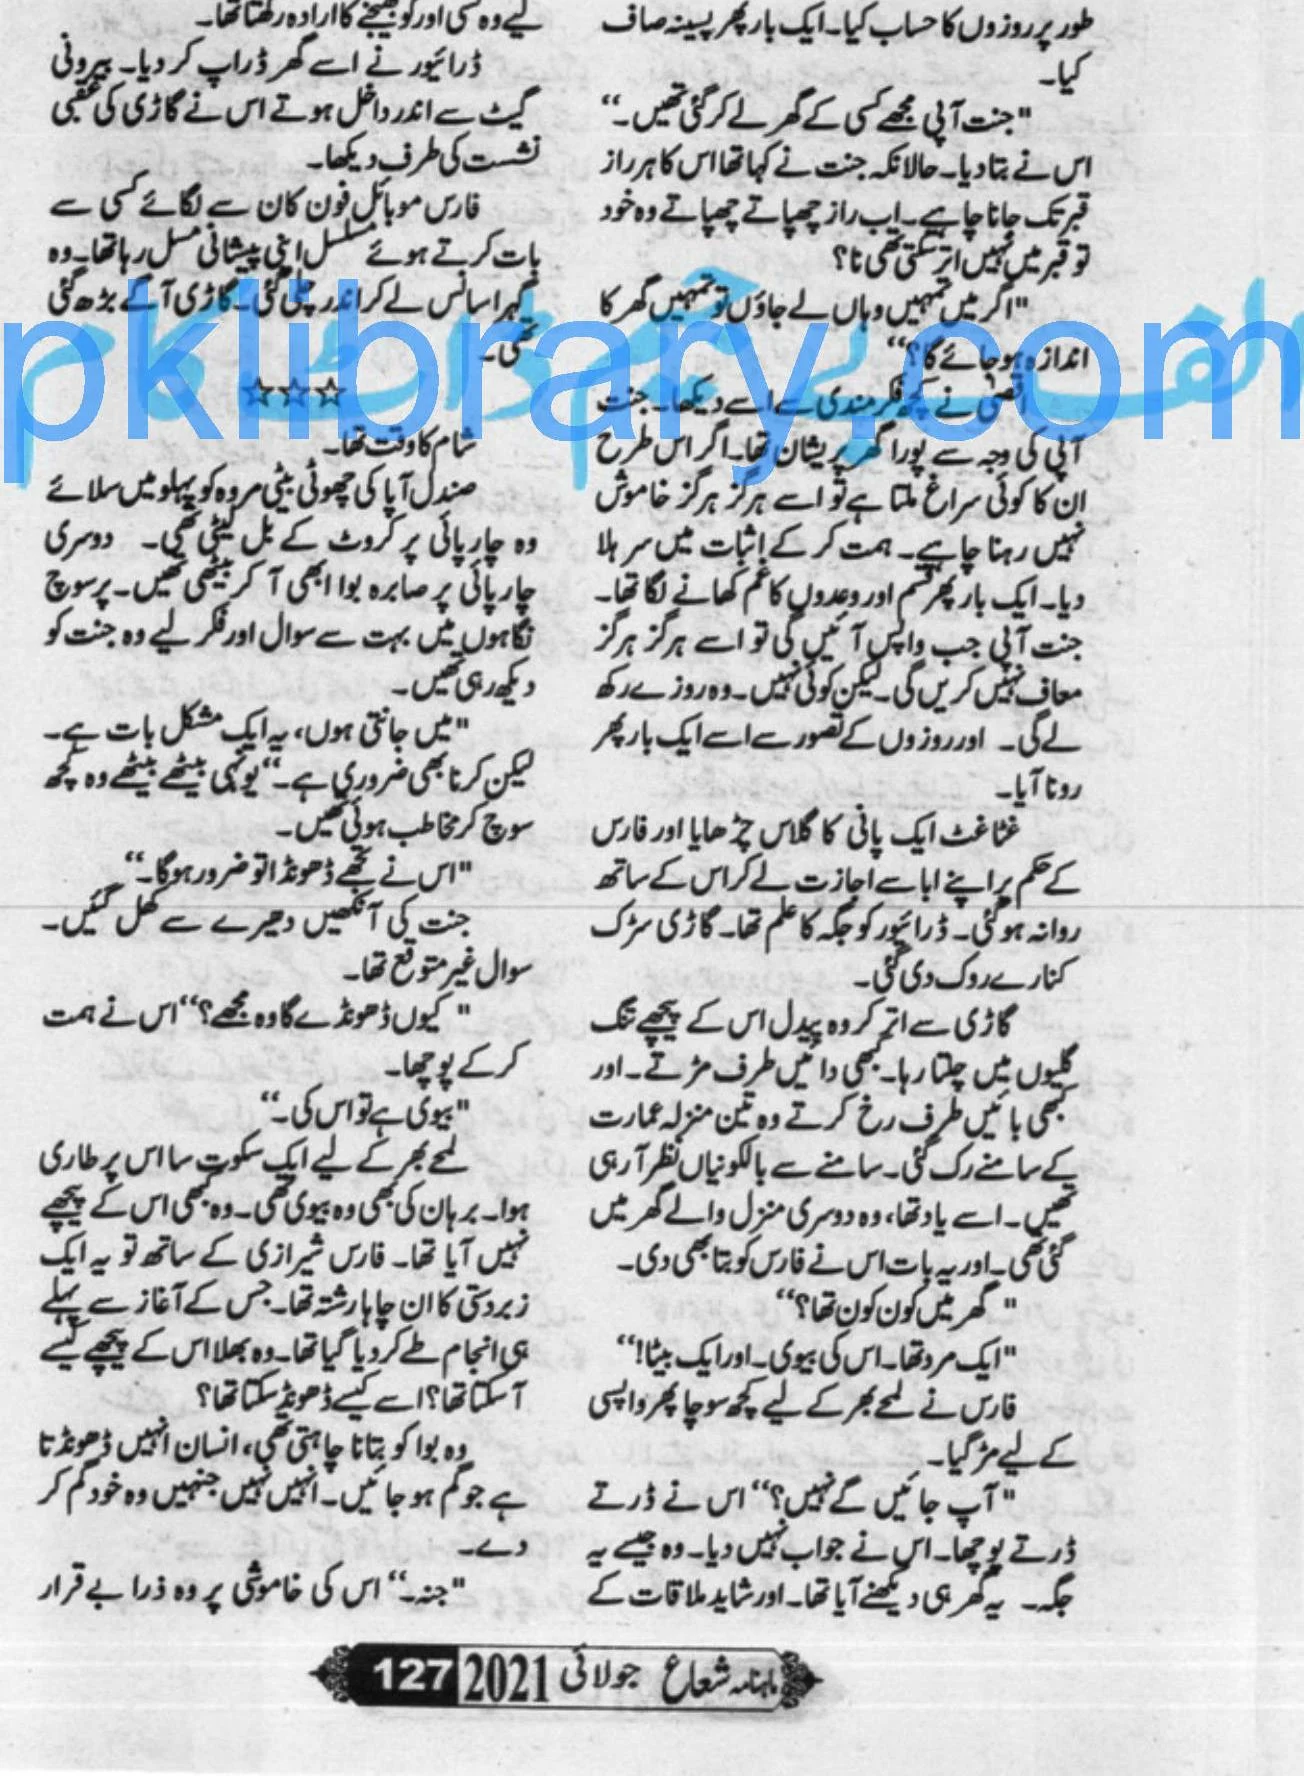 طور پر روزوں کا حساب کیا۔ ایک بار پھر پسینہ صاف
کیا۔
"جنت آپی مجھے کسی کے گھر لے کر گئی تھیں۔"
اس نے بتا دیا۔ حالانکہ جنت نے کہا تھا اس کا ہر راز
قبر تک جانا چاہیے۔ اب راز چھپاتے چھپاتے وہ خود
تو قبر میں نہیں اتر سکتی تھی نا؟
"اگر میں تمہیں وہاں لے جاؤں تو تمہیں گھر کا
اندازہ ہو جائے گا؟"
اقصیٰ نے کچھ فکر مندی سے اسے دیکھا۔ جنت
آپی کی وجہ سے پورا گھر پریشان تھا۔ اگر اس طرح
ان کا کوئی سراغ ملتا ہے تو اسے ہرگز ہرگز خاموش
نہیں رہنا چاہیے۔ ہمت کر کے اثبات میں سر ہلا
دیا۔ ایک بار پھر قسم اور وعدوں کا غم کھانے لگا تھا۔
جنت آپی جب واپس آئیں گی تو اسے ہرگز ہرگز
معاف نہیں کریں گی۔ لیکن کوئی نہیں۔ وہ روزے رکھ
لے گی۔ اور روزوں کے تصور سے اسے ایک بار پھر
رونا آیا۔
غٹاغٹ ایک پانی کا گلاس چڑھایا اور فارس
کے حکم پر اپنے ابا سے اجازت لے کر اس کے ساتھ
روانہ ہو گئی۔ ڈرائیور کو جگہ کا علم تھا۔ گاڑی سڑک
کنارے روک دی گئی۔
گاڑی سے اتر کر وہ پیدل اس کے پیچھے تنگ
گلیوں میں چلتا رہا۔ کبھی دائیں طرف مڑتے۔ اور
کبھی بائیں طرف رخ کرتے وہ تین منزلہ عمارت
کے سامنے رک گئی۔ سامنے سے بالکونیاں نظر آ رہی
تھیں۔ اسے یاد تھا، وہ دوسری منزل والے گھر میں
گئی تھی۔ اور یہ بات اس نے فارس کو بتا بھی دی۔
"گھر میں کون کون تھا؟"
"ایک مرد تھا۔ اس کی بیوی۔ اور ایک بیٹا!"
فارس نے لمحے بھر کے لیے کچھ سوچا پھر واپسی
کے لیے مڑ گیا۔
"آپ جائیں گے نہیں؟" اس نے ڈرتے
ڈرتے پوچھا۔ اس نے جواب نہیں دیا۔ وہ جیسے یہ
جگہ۔ یہ گھر ہی دیکھنے آیا تھا۔ اور شاید ملاقات کے
لیے وہ کسی اور کو بھیجنے کا ارادہ رکھتا تھا۔
ڈرائیور نے اسے گھر ڈراپ کر دیا۔ بیرونی
گیٹ سے اندر داخل ہوتے اس نے گاڑی کی عقبی
نشست کی طرف دیکھا۔
فارس موبائل فون کان سے لگائے کسی سے
بات کرتے ہوئے مسلسل اپنی پیشانی مسل رہا تھا۔ وہ
گہرا سانس لے کر اندر چلی گئی۔ گاڑی آگے بڑھ گئی
تھی۔
☆☆☆
شام کا وقت تھا۔
صندل آپا کی چھوٹی بیٹی مروہ کو پہلو میں سلائے
وہ چارپائی پر کروٹ کے بل لیٹی تھی۔ دوسری
چارپائی پر صابرہ بوا ابھی آ کر بیٹھی تھیں۔ پرسوچ
نگاہوں میں بہت سے سوال اور فکر لیے وہ جنت کو
دیکھ رہی تھیں۔
"میں جانتی ہوں، یہ ایک مشکل بات ہے۔
لیکن کرنا بھی ضروری ہے۔" یونہی بیٹھے بیٹھے وہ کچھ
سوچ کر مخاطب ہوئی تھیں۔
"اس نے تجھے ڈھونڈا تو ضرور ہوگا۔"
جنت کی آنکھیں دھیرے سے کھل گئیں۔
سوال غیر متوقع تھا۔
"کیوں ڈھونڈے گا وہ مجھے؟" اس نے ہمت
کر کے پوچھا۔
"بیوی ہے تو اس کی۔"
لمحے بھر کے لیے ایک سکوت سا اس پر طاری
ہوا۔ برہان کی بھی وہ بیوی تھی۔ وہ کبھی اس کے پیچھے
نہیں آیا تھا۔ فارس شیرازی کے ساتھ تو یہ ایک
زبردستی کا ان چاہا رشتہ تھا۔ جس کے آغاز سے پہلے
ہی انجام طے کر دیا گیا تھا۔ وہ بھلا اس کے پیچھے کیسے
آ سکتا تھا؟ اسے کیسے ڈھونڈ سکتا تھا؟
وہ بوا کو بتانا چاہتی تھی، انسان انہیں ڈھونڈتا
ہے جو گم ہو جائیں۔ انہیں نہیں جنہیں وہ خود گم کر
دے۔
"جنہ۔" اس کی خاموشی پر وہ ذرا بے قرار
pklibrary.com
ماہنامہ شعاع جولائی 2021 127